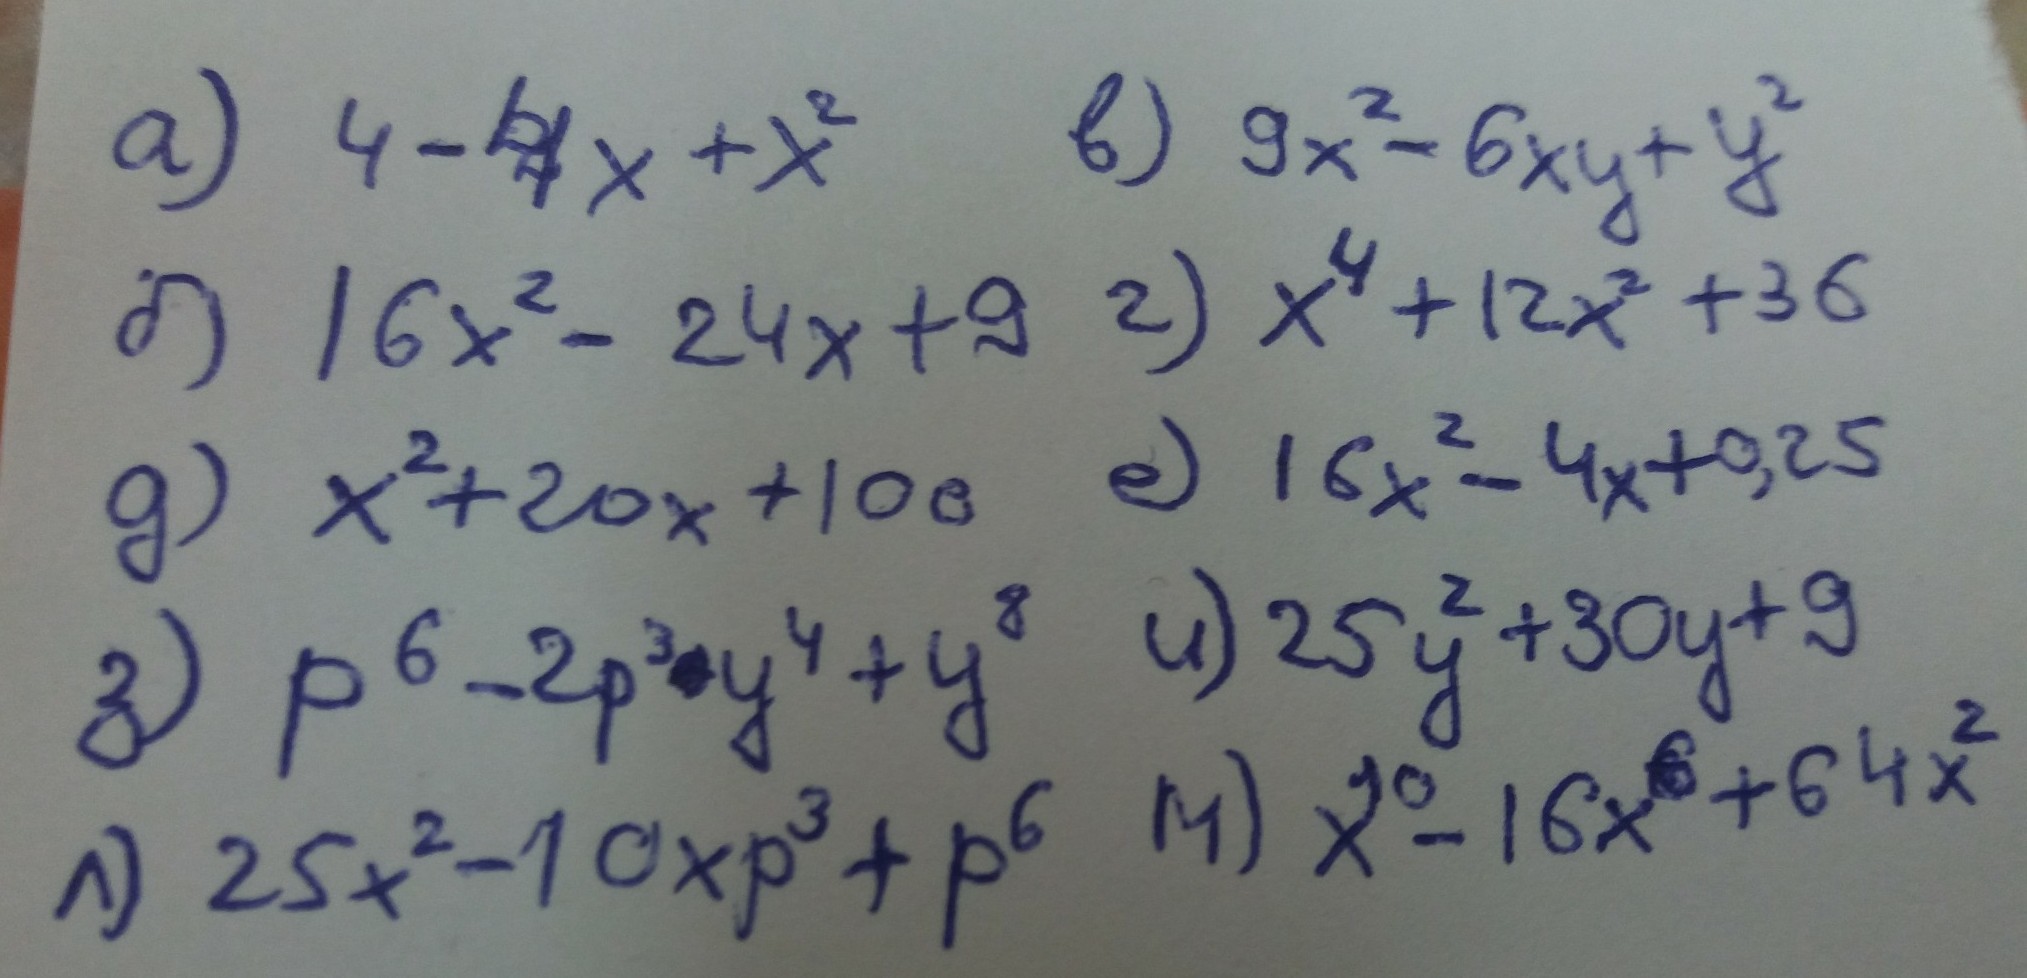 а) 4 - 4x + x² в) 9x² - 6xy + y²
б) 16x² - 24x + 9 г) x⁴ + 12x² + 36
д) x² + 20x + 100 е) 16x² - 4x + 0,25
з) p⁶ - 2p³y⁴ + y⁸ и) 25y² + 30y + 9
л) 25x² - 10xp³ + p⁶ м) x¹⁰ - 16x⁶ + 64x²